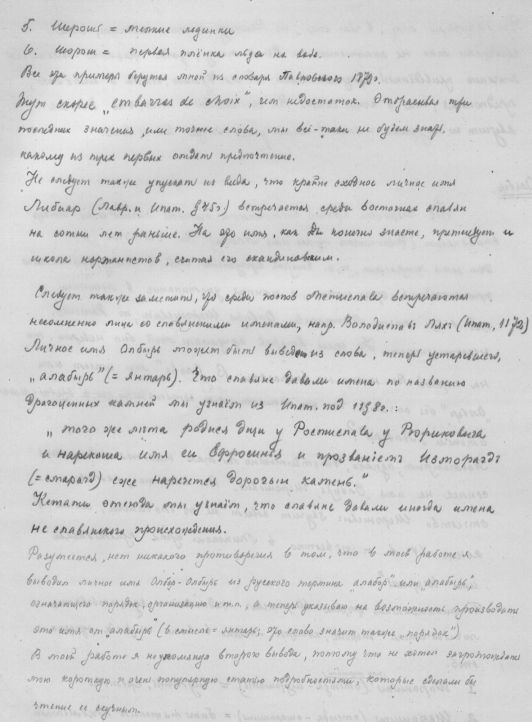 5. Шерошь = мелкие льдинки
6. Шорош = первая плёнка льда на воде.
Все эти примеры берутся мной из словаря Павловского 1879г.
Тут скорее „embarras de choix", чем недостаток. Отбрасывая три
последних значения, или точнее слова, мы всё-таки не будем знать,
какому из трех первых отдать предпочтение.
Не следует также упускать из вида, что крайне сходное личное имя
Либиар (Лавр. и Ипат. 945г) встречается среди восточных славян
на сотни лет раньше. На это имя, как Вы конечно знаете, претендует и
школа норманистов, считая его скандинавским.
Следует также заметить, что среди послов Мстислава встречаются
несомненно лица со славянскими именами, напр. Володиславъ Ляхъ (Ипат, 1173)
Личное имя Олбырь может быть выведено из слова, теперь устаревшего,
„алабырь" (= янтарь). Что славяне давали имена по названию
драгоценных камней мы узнаём из Ипат. под 1198г.:
„того же лѣта родися дщи у Ростислава у Рюриковича
и нарекоша имя ей Ефросинья и прозваніемъ Изморагдъ
(= смарагд) еже наречется дорогый камень."
Кстати отсюда мы узнаём, что славяне давали иногда имена
не славянского происхождения.
Разумеется, нет никакого противоречия в том, что в моей работе я
выводил личное имя Олбор-Олбырь из русского термина „алабор" или „алабырь",
означающего порядок, организацию и т.п., а теперь указываю на возможность производить
это имя от „алабырь" (в смысле = янтарь; это слово значит также „порядок")
В моей работе я не упомянул второго вывода, потому что не хотел загромождать
мою короткую и очень популярную статью подробностями, которые сделали бы
чтение её скучным.